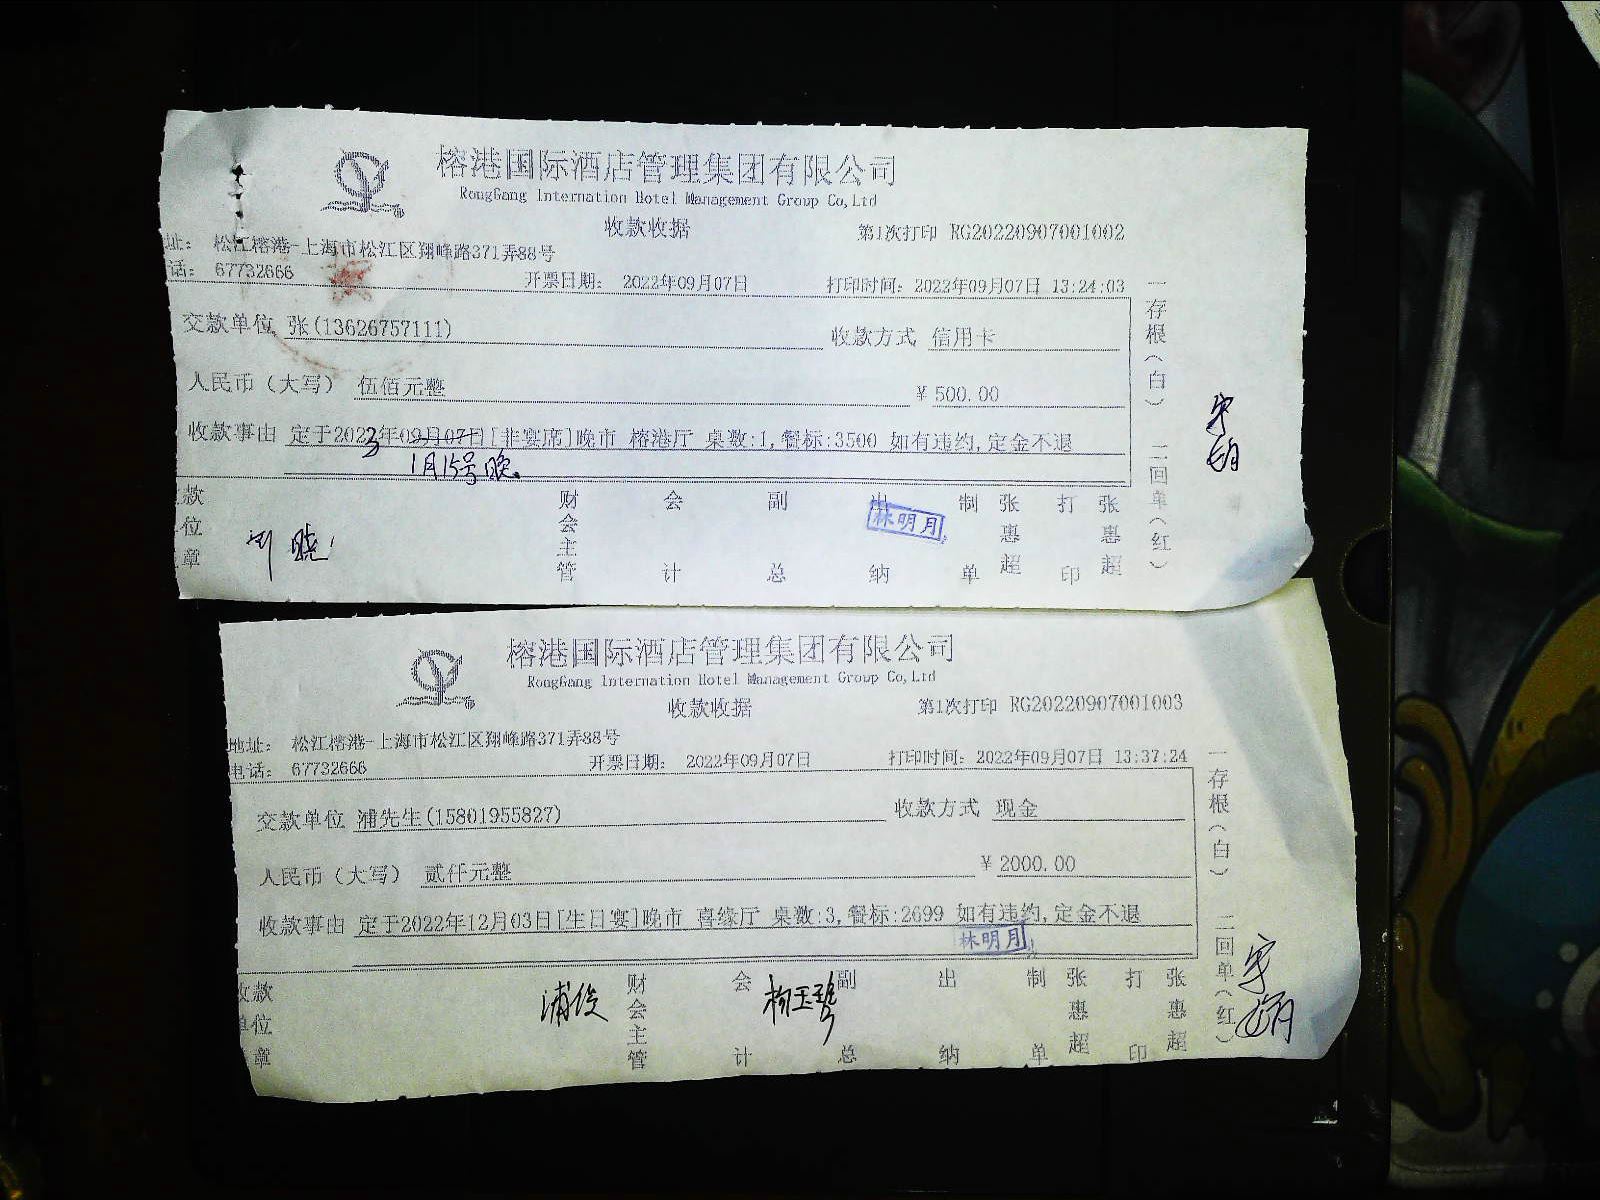 榕港国际酒店管理集团有限公司
RongGang International Hotel Management Group Co,Ltd
收款收据 第1次打印 RG20220907001002
址: 松江榕港-上海市松江区翔峰路371弄88号
话: 67732666 开票日期: 2022年09月07日 打印时间: 2022年09月07日 13:24:03
交款单位 张(13626757111) 收款方式 信用卡
人民币（大写） 伍佰元整 ¥ 500.00
收款事由 定于2023年09月07日[非宴席]晚市 榕港厅 桌数:1,餐标:3500 如有违约,定金不退
1月15号晚
款位章 财会主管 会计 副总 出纳 制单 张惠超 打印 张惠超
林明月
一存根（白） 二回单（红）
榕港国际酒店管理集团有限公司
RongGang International Hotel Management Group Co,Ltd
收款收据 第1次打印 RG20220907001003
地址: 松江榕港-上海市松江区翔峰路371弄88号
电话: 67732666 开票日期: 2022年09月07日 打印时间: 2022年09月07日 13:37:24
交款单位 浦先生(15801955827) 收款方式 现金
人民币（大写） 贰仟元整 ¥ 2000.00
收款事由 定于2022年12月03日[生日宴]晚市 喜缘厅 桌数:3,餐标:2699 如有违约,定金不退
林明月
收款单位章 浦俊 财会主管 会计 杨玉琴 副总 出纳 制单 张惠超 打印 张惠超
一存根（白） 二回单（红）